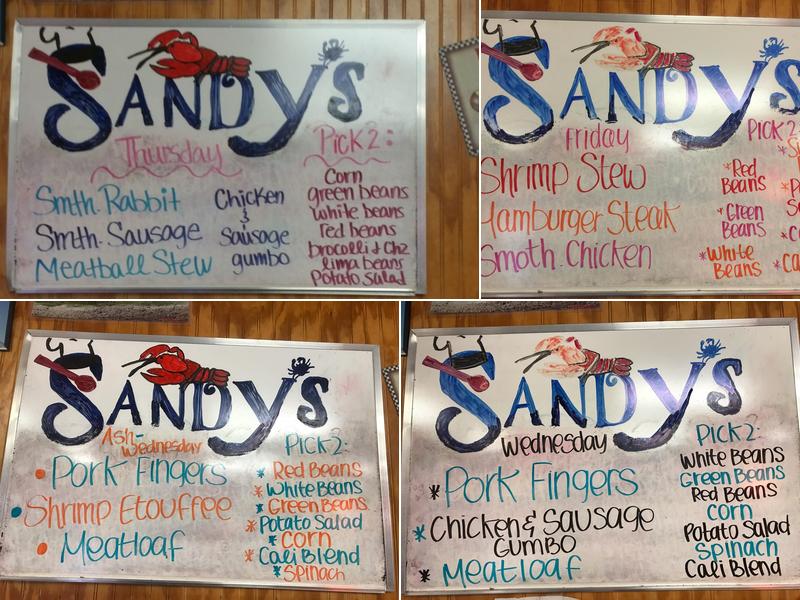 SANDY'S
Thursday
Smth. Rabbit
Smth. Sausage
Meatball Stew
Chicken
&
Sausage
gumbo
PICK 2:
Corn
green beans
white beans
red beans
brocolli & chz
lima beans
Potato Salad
SANDY'S
Friday
Shrimp Stew
Hamburger Steak
Smoth. Chicken
PICK 2
*Red
Beans
*Green
Beans
*White
Beans
SANDY'S
Ash-
Wednesday
Pork Fingers
Shrimp Etouffee
Meatloaf
PICK 2:
* Red Beans
* White Beans
* Green Beans
* Potato Salad
* Corn
* Cali Blend
* Spinach
SANDY'S
Wednesday
* Pork Fingers
* Chicken & Sausage
Gumbo
* Meatloaf
PICK 2:
White Beans
Green Beans
Red Beans
Corn
Potato Salad
Spinach
Cali Blend